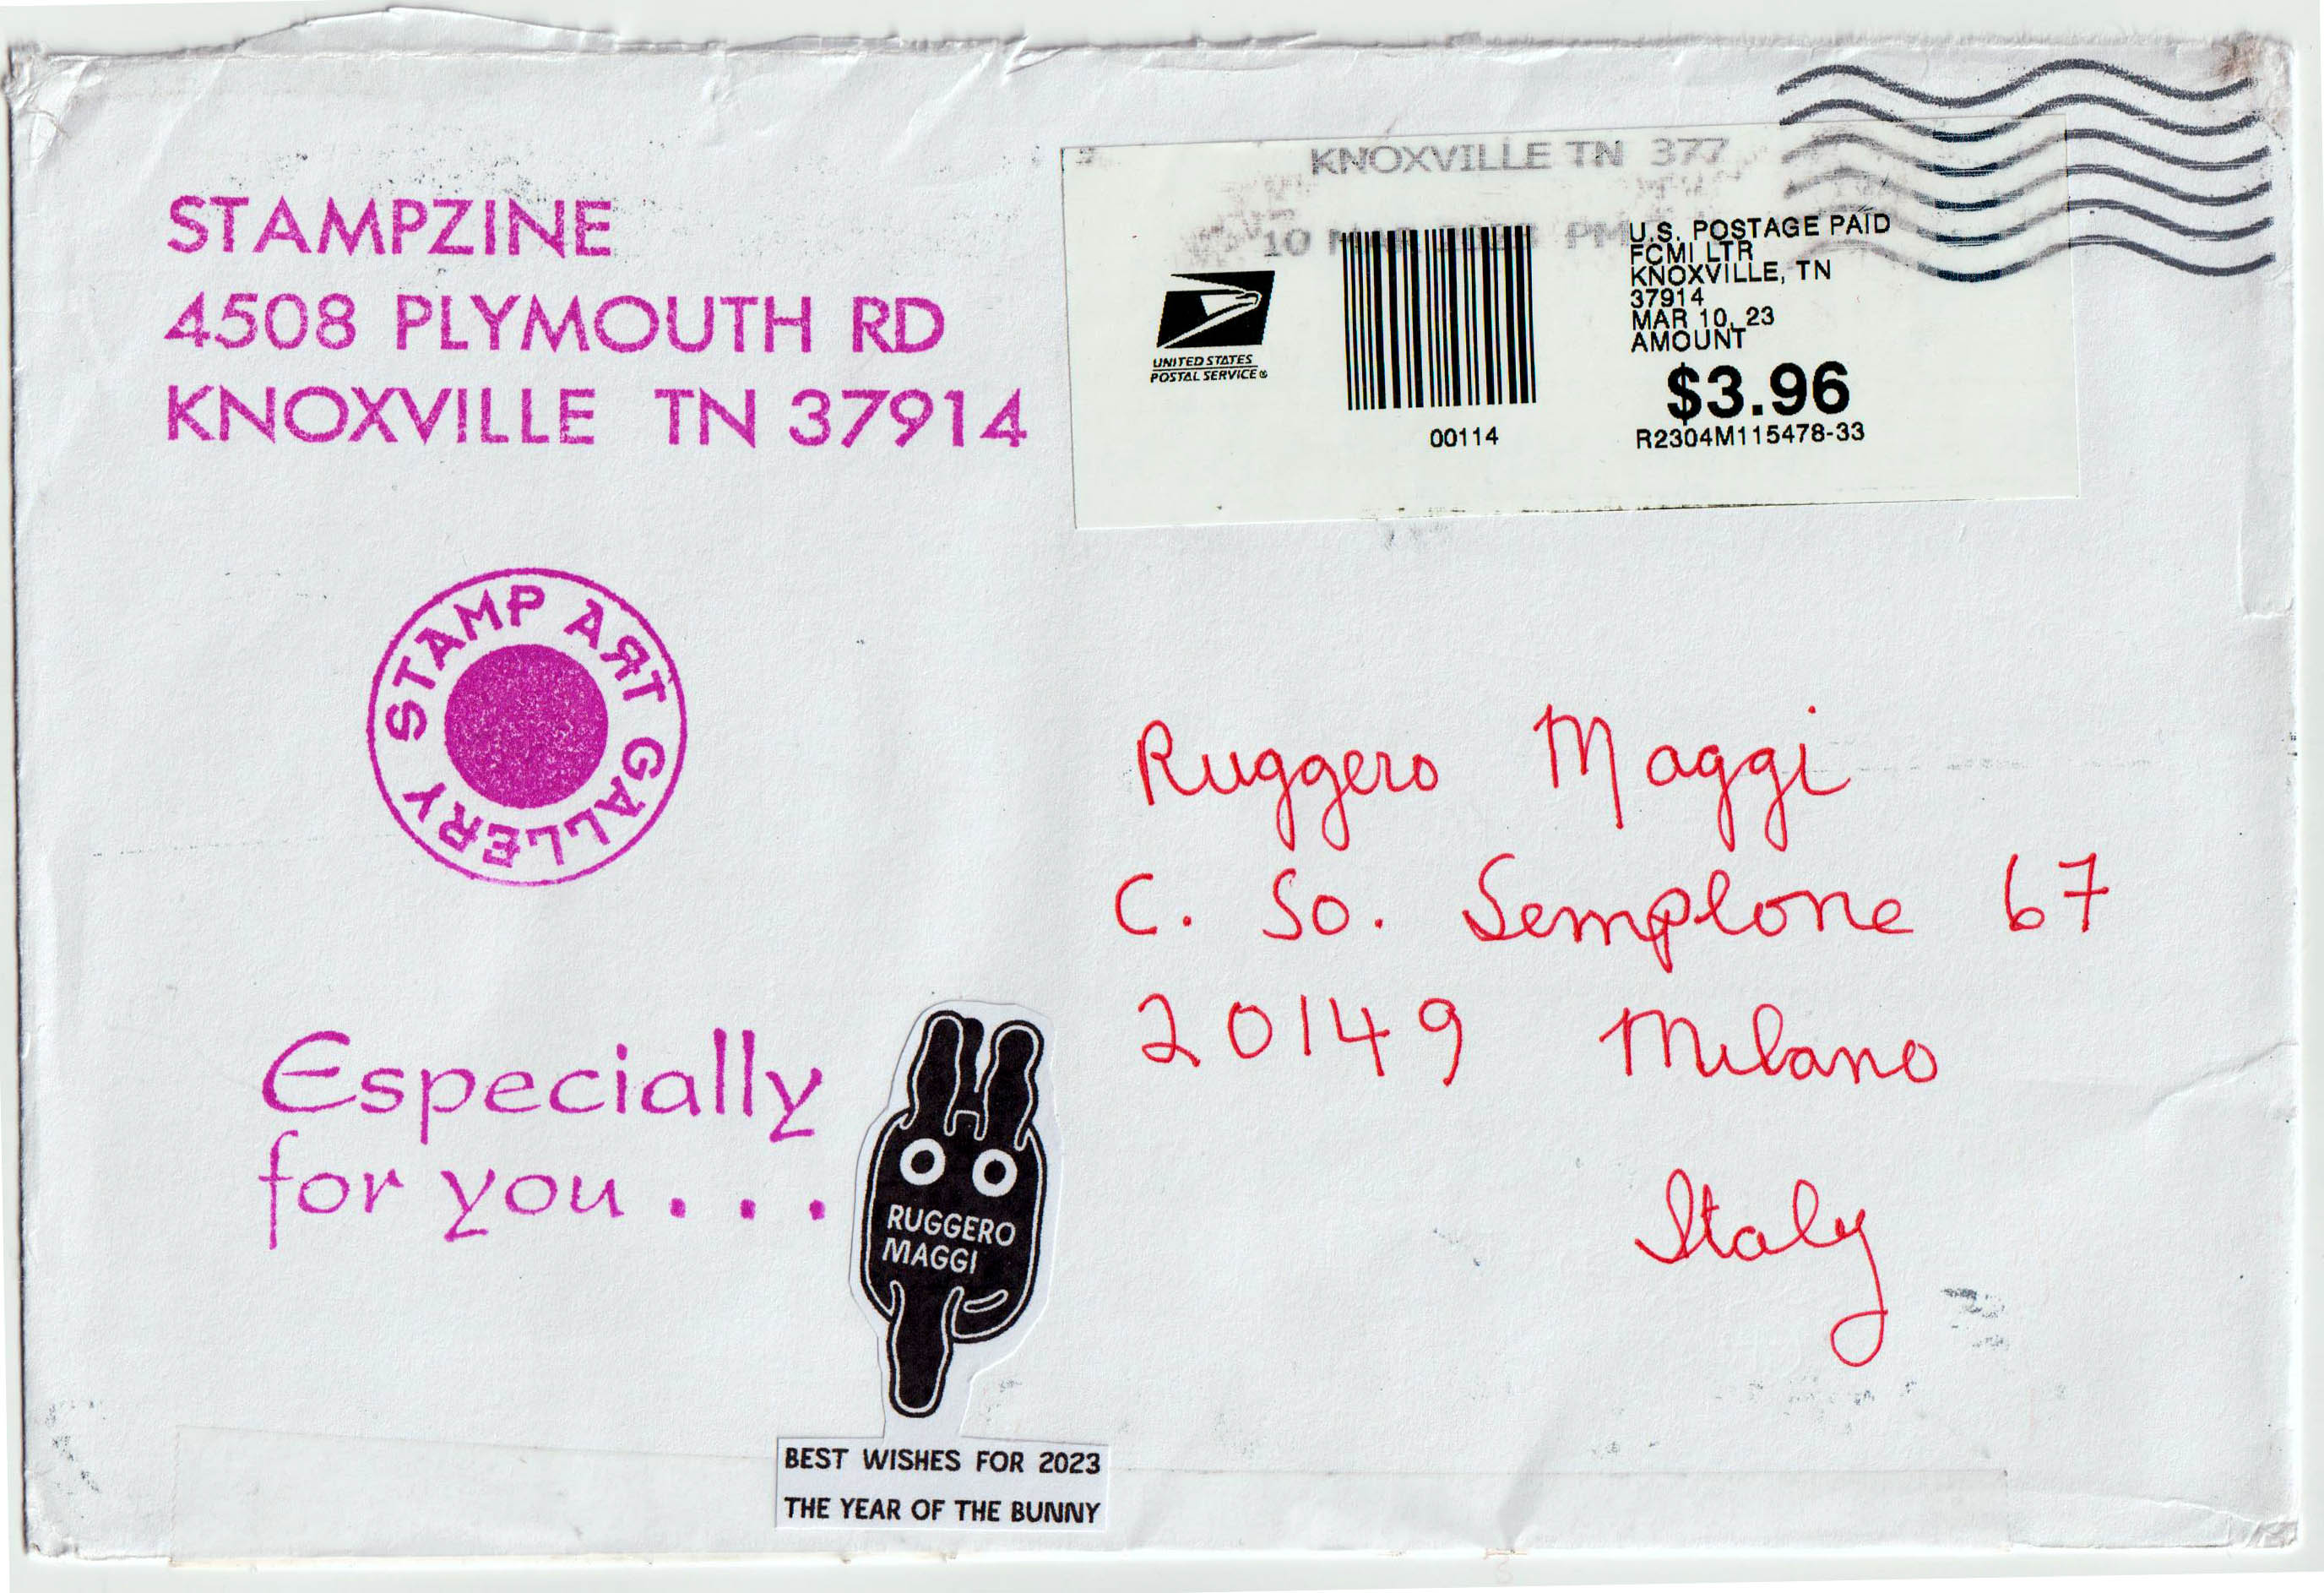 STAMPZINE
4508 PLYMOUTH RD
KNOXVILLE TN 37914
KNOXVILLE TN 377
10 MAR 2023 PM
UNITED STATES
POSTAL SERVICE®
00114
U.S. POSTAGE PAID
FCMI LTR
KNOXVILLE, TN
37914
MAR 10, 23
AMOUNT
$3.96
R2304M115478-33
STAMP ART GALLERY
Ruggero Maggi
C. So. Semplone 67
20149 Milano
Italy
Especially
for you...
RUGGERO
MAGGI
BEST WISHES FOR 2023
THE YEAR OF THE BUNNY